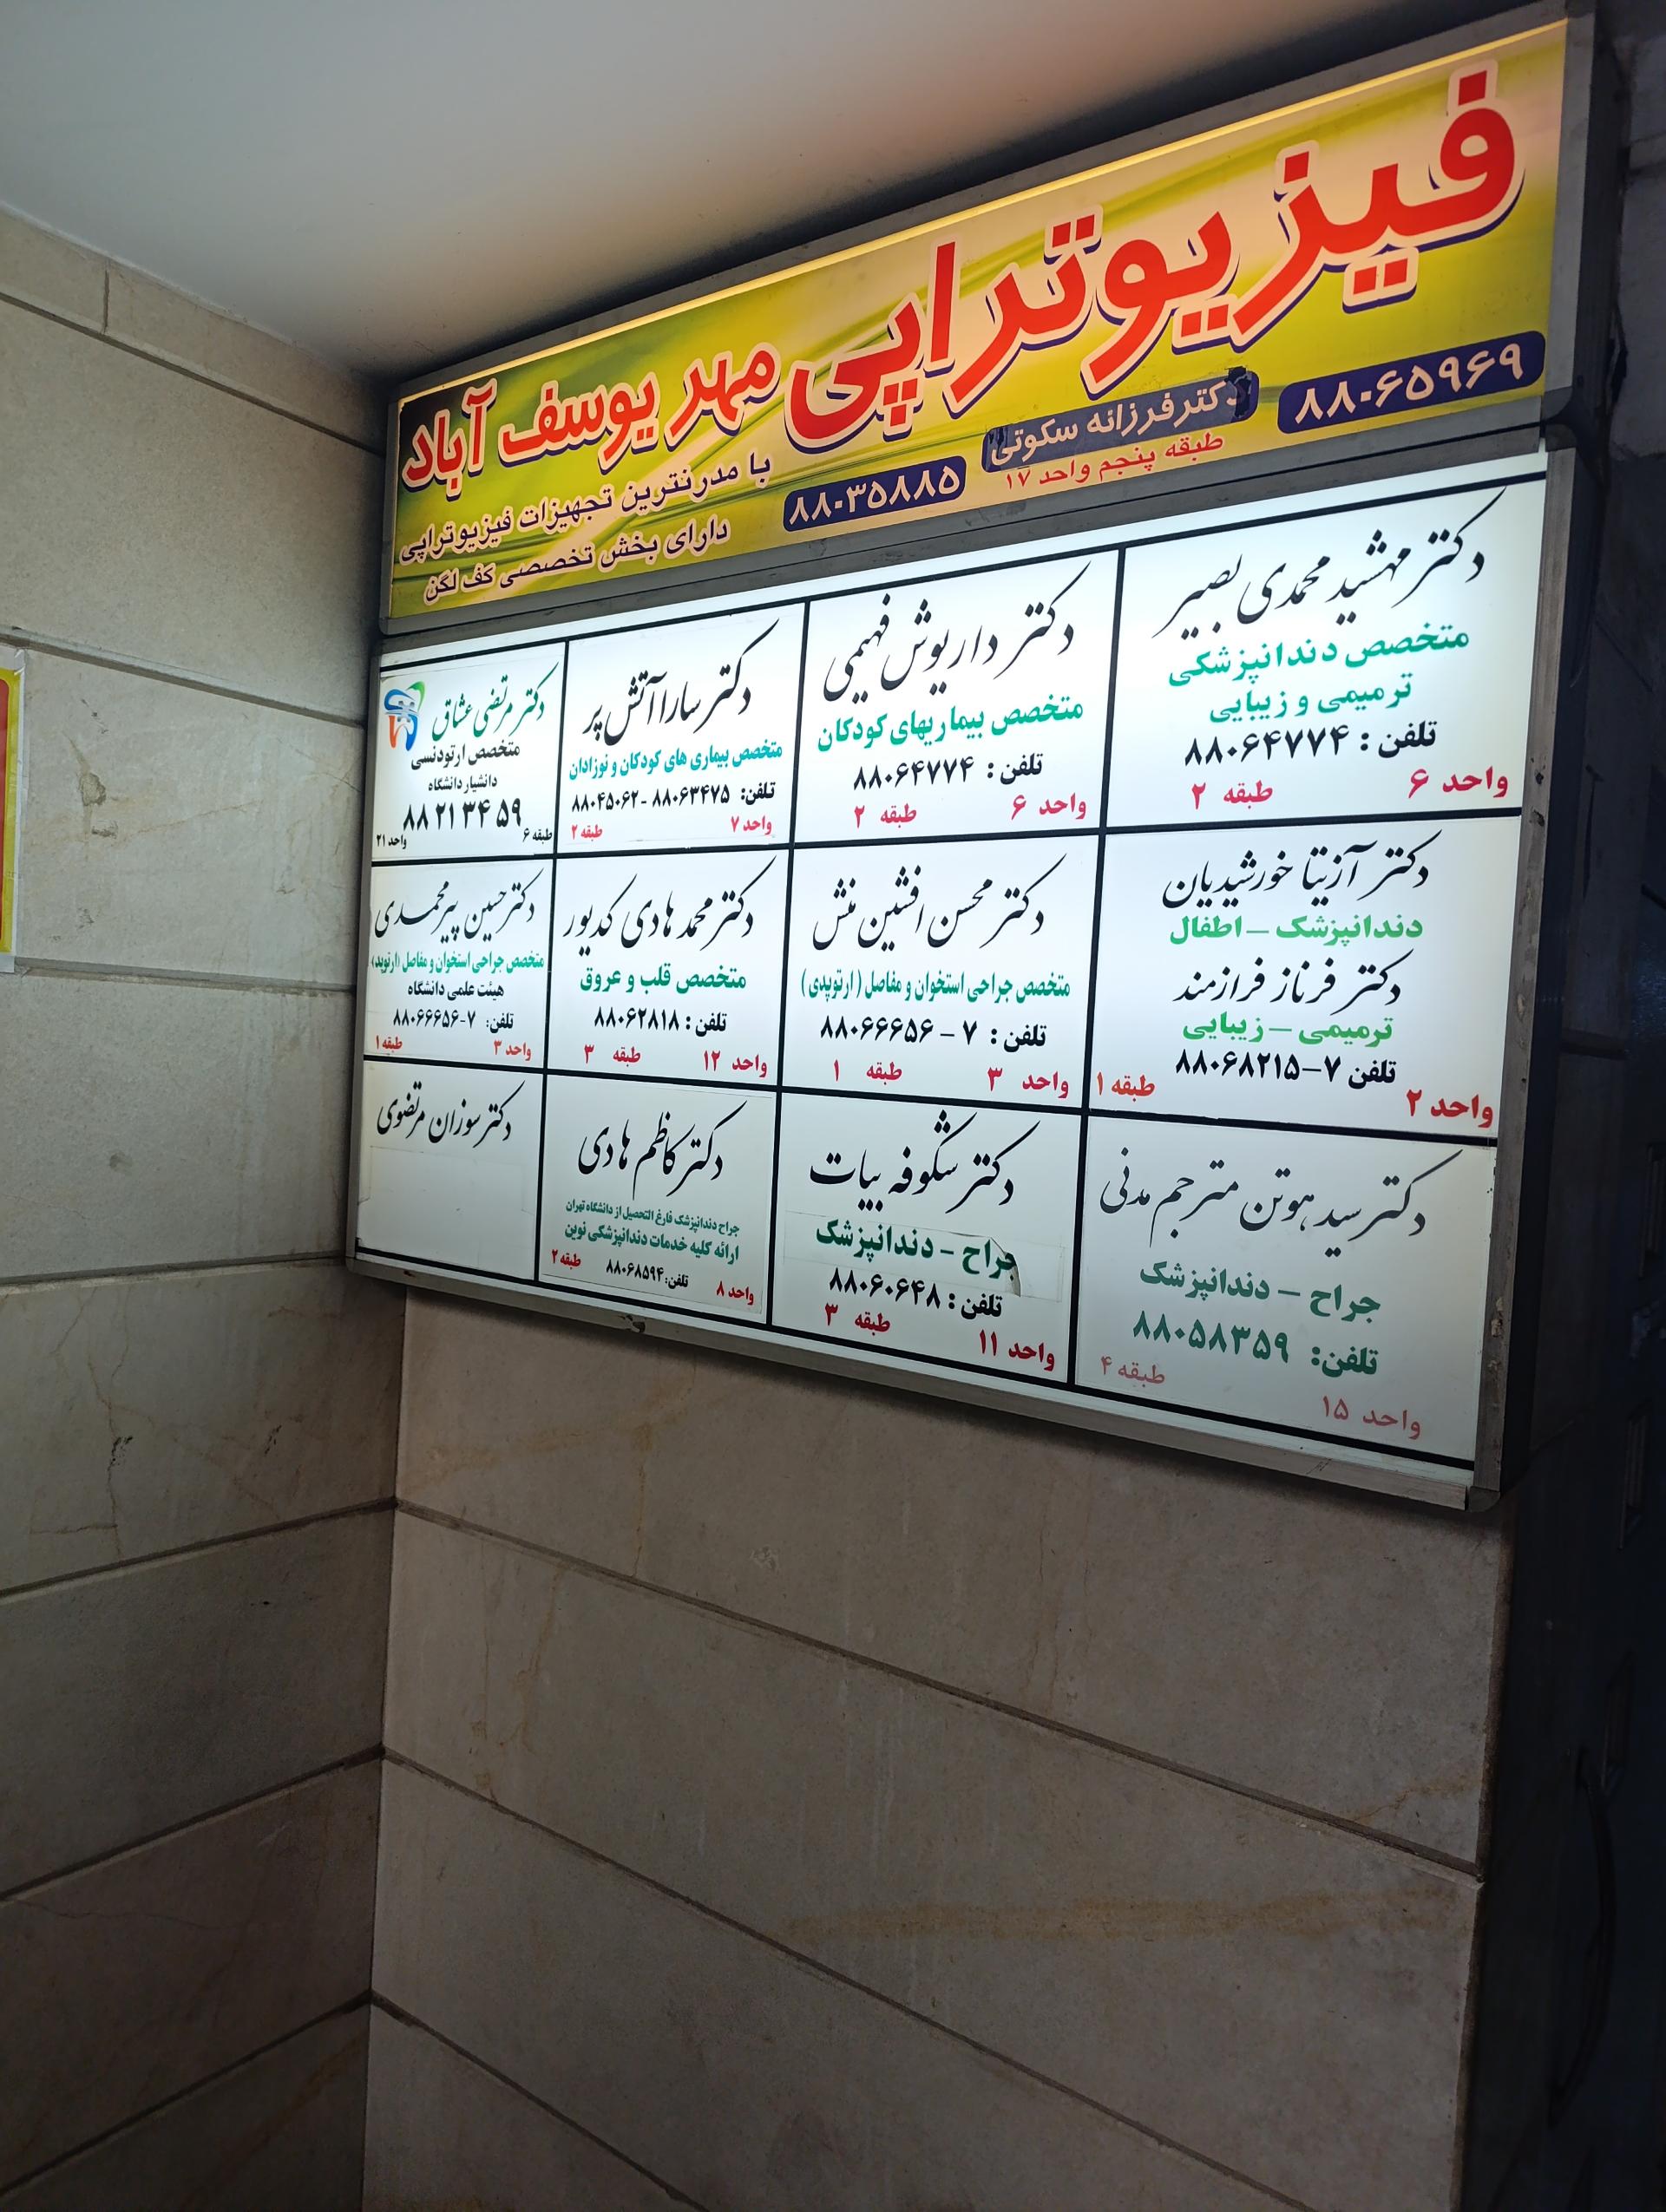 فیزیوتراپی مهر یوسف آباد
۸۸۰۶۵۹۶۹
دکتر فرزانه سکوتی
طبقه پنجم واحد ۱۷
۸۸۰۳۵۸۸۵
با مدرنترین تجهیزات فیزیوتراپی
دارای بخش تخصصی کف لگن
دکتر مهشید محمدی بصیر
متخصص دندانپزشکی
ترمیمی و زیبایی
تلفن : ۸۸۰۶۴۷۷۴
واحد ۶ طبقه ۲
دکتر داریوش فهیمی
متخصص بیماریهای کودکان
تلفن : ۸۸۰۶۴۷۷۴
واحد ۶ طبقه ۲
دکتر سارا آتش پر
متخصص بیماری های کودکان و نوزادان
تلفن: ۸۸۰۶۳۴۷۵ - ۸۸۰۴۵۰۶۲
واحد ۷ طبقه ۲
دکتر مرتضی عشاق
متخصص ارتودنسی
دانشیار دانشگاه
۸۸۲۱۳۴۵۹
طبقه ۶ واحد ۲۱
دکتر آزیتا خورشیدیان
دندانپزشک – اطفال
دکتر فرناز فرازمند
ترمیمی – زیبایی
تلفن ۷–۸۸۰۶۸۲۱۵
واحد ۲ طبقه ۱
دکتر محسن افشین منش
متخصص جراحی استخوان و مفاصل (ارتوپدی)
تلفن : ۷ – ۸۸۰۶۶۶۵۶
واحد ۳ طبقه ۱
دکتر محمد هادی کدیور
متخصص قلب و عروق
تلفن : ۸۸۰۶۲۸۱۸
واحد ۱۲ طبقه ۳
دکتر حسین پیرمحمدی
متخصص جراحی استخوان و مفاصل (ارتوپد)
هیئت علمی دانشگاه
تلفن: ۷-۸۸۰۶۶۶۵۶
واحد ۳ طبقه ۱
دکتر سید هوتن مترجم مدنی
جراح – دندانپزشک
تلفن: ۸۸۰۵۸۳۵۹
طبقه ۴
واحد ۱۵
دکتر شکوفه بیات
جراح – دندانپزشک
تلفن : ۸۸۰۶۰۶۴۸
واحد ۱۱ طبقه ۳
دکتر کاظم هادی
جراح دندانپزشک فارغ التحصیل از دانشگاه تهران
ارائه کلیه خدمات دندانپزشکی نوین
تلفن: ۸۸۰۶۸۵۹۴
واحد ۸ طبقه ۲
دکتر سوزان مرتضوی